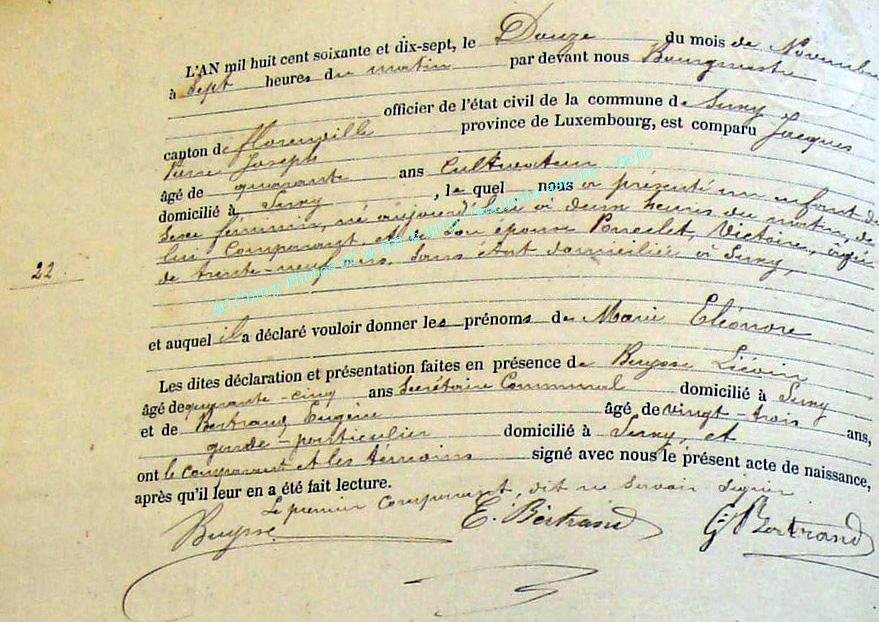 L'AN mil huit cent soixante et dix-sept, le Douze du mois de Novembre
à Sept heures du matin par devant nous Bourgmestre
officier de l'état civil de la commune de Suxy
canton de florenville province de Luxembourg, est comparu Jacques
Pierre Joseph
âgé de quarante ans Cultivateur
domicilié à Suxy, lequel nous a présenté un enfant de
Sexe féminin, né aujourd'hui à deux heures du matin, de
lui Comparant, et de Son épouse Poncelet, Victoire, âgée
de trente-neuf ans, Sans état domiciliée à Suxy,
22
et auquel il a déclaré vouloir donner les prénoms de Marie Eléonore
Les dites déclaration et présentation faites en présence de Buysse Liévin
âgé de quarante-cinq ans Secrétaire Communal domicilié à Suxy
et de Bertrand Eugène âgé de vingt-trois ans,
garde-particulier domicilié à Suxy, et
ont le comparant et les témoins signé avec nous le présent acte de naissance,
après qu'il leur en a été fait lecture.
Le premier Comparant, dit ne Savoir Signer
Buysse E. Bertrand G. Bertrand